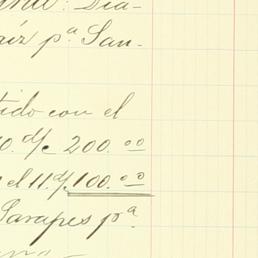 Dia-
iz pª San-
tido con el
0. d/c 200.00
el 11. d/ 100.00
Sarapes pª